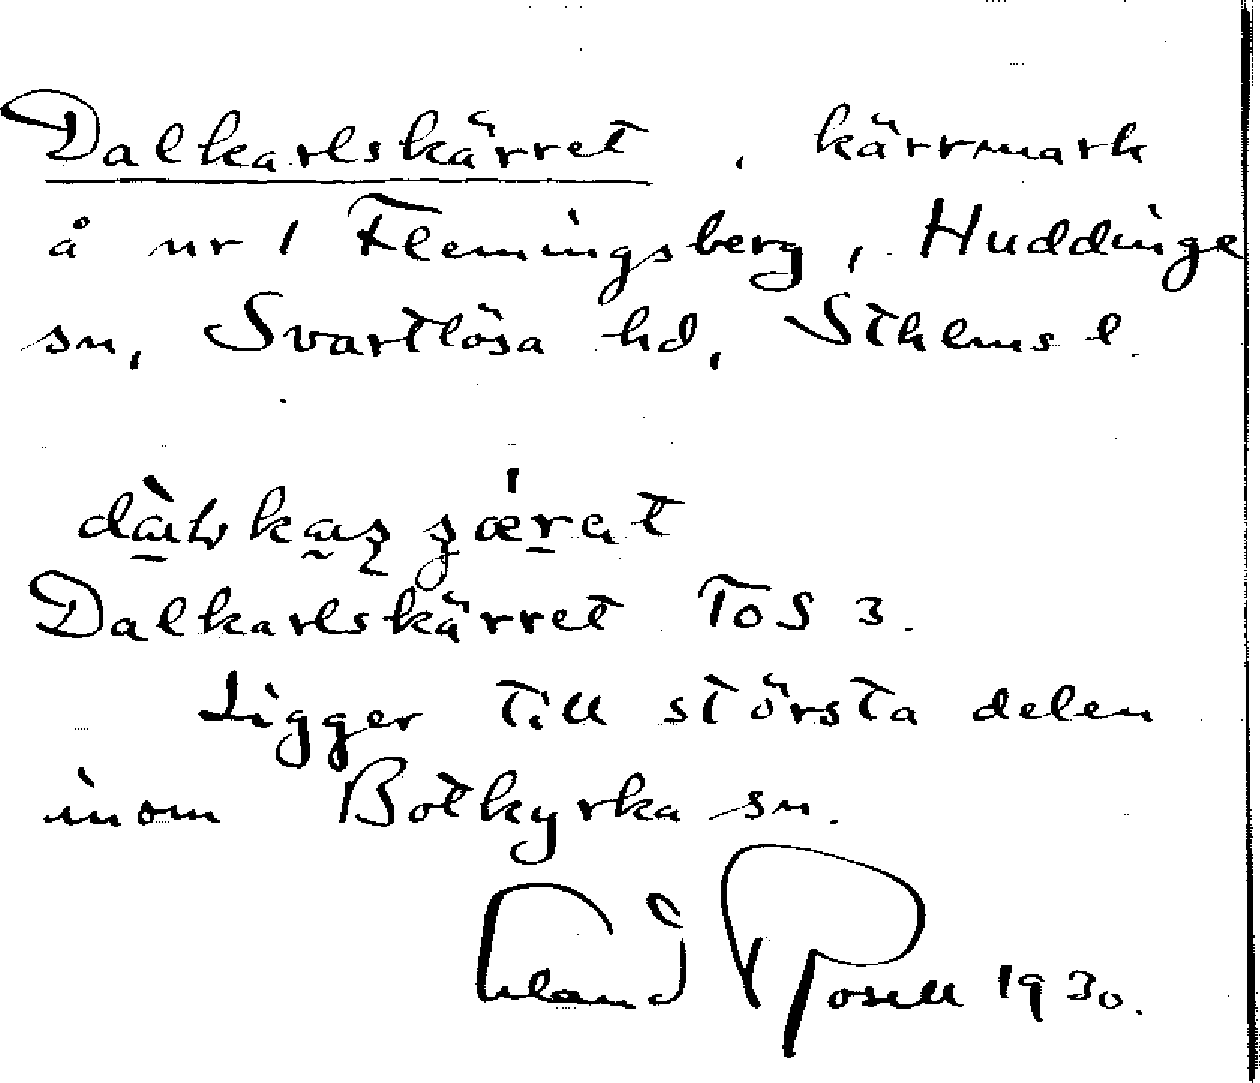 Dalkarlskärret, kärrmark
å nr 1 Flemingsberg, Huddinge
sn, Svartlösa hd, Sthlms l.
Dalkarlskärret ToS 3.
Ligger till största delen
inom Botkyrka sn.
Erland Rosell 1930.